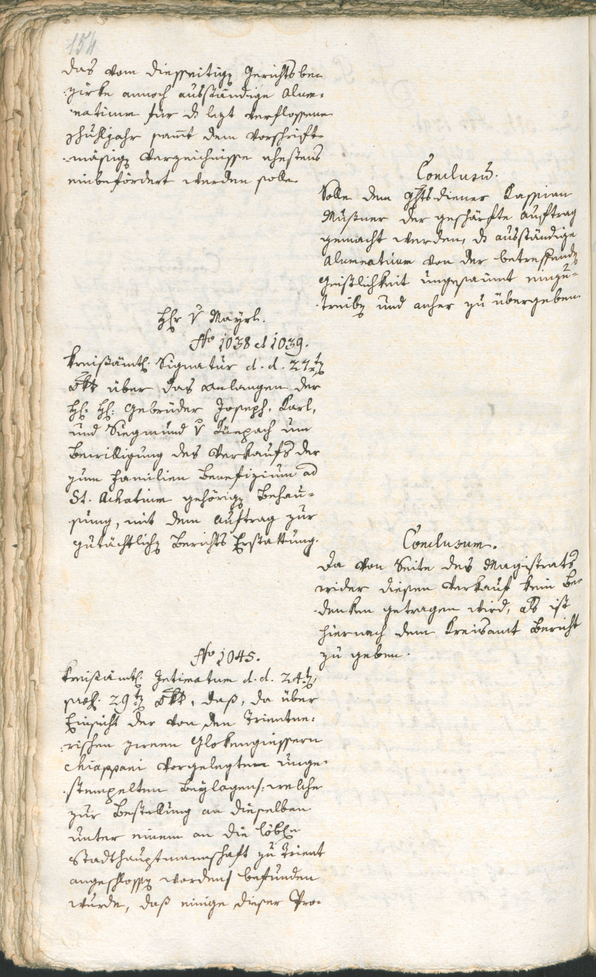 154
das vom diesseitigen Gerichtsbe-
zirke annoch ausständige Alum-
natium für das letzt verflossene
Schuljahr sammt dem vorschrift-
mäsigen Verzeichnisse ehestens
einbefördert werden solle.
Conclusum.
Solle dem Gerichtsdiener Kassian
Müssner der geschärfte Auftrag
gemacht werden, das ausständige
Alumnatium von der betreffenden
Geistlichkeit ungesäumt einzu-
treiben und anher zu übergeben.
Hhr v Mayrl.
No 1038 et 1039.
Kreisämtl. Signatur d. d. 27ten
8br über das Anlangen der
HH. HH. Gebrüder Joseph, Karl,
und Siegmund v
um
Bewilligung des Verkaufs der
zum Familien Benefizium ad
St. Achatium gehörigen Behau-
sung, mit dem Auftrag zur
gutächtlichen Berichts Erstattung.
Conclusum.
Da von Seite des Magistrats
wider diesen Verkauf kein Be-
denken getragen wird, als ist
hiernach dem Kreisamt Bericht
zu geben.
No 1045.
Kreisämtl. Intimatum d. d. 24ten
praes. 29ten 8br, daß, da über
Einsicht der von den Trientne-
rischen zween Glokengiessern
Chiappani vorgelegten unge-
stempelten Beylagen /: welche
zur Bestellung an dieselben
unter einem an die löbl.
Stadthauptmannschaft zu Trient
angeschlossen worden / befunden
wurde, daß einige dieser Pro-